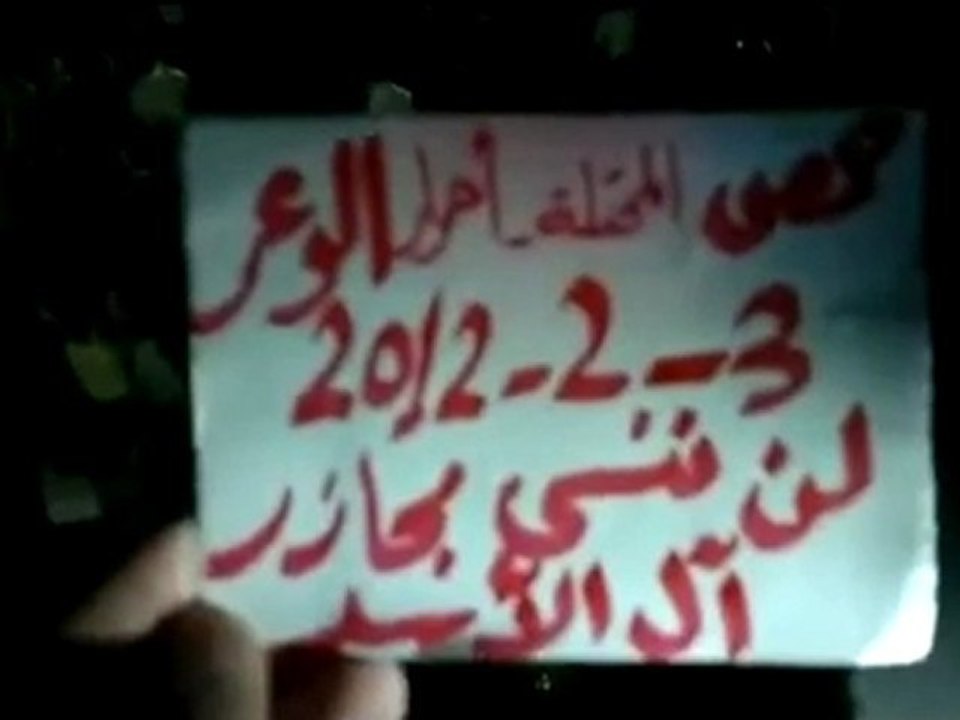 حمص المحتلة - أحرار الوعر
3-2-2012
لن ننسى مجازر
آل الأسد